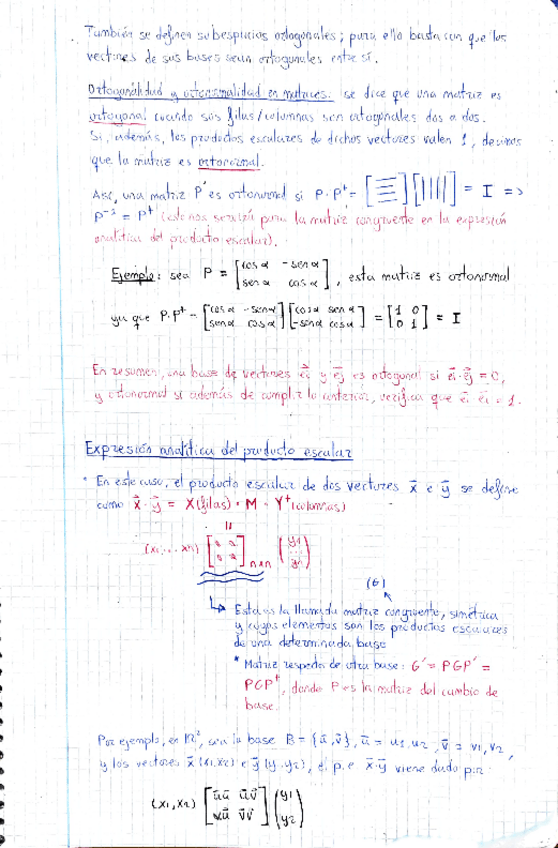 También se definen subespacios ortogonales; para ello basta con que los
vectores de sus bases sean ortogonales entre sí.
Ortogonalidad y ortonormalidad en matrices: se dice que una matriz es
ortogonal cuando sus filas/columnas son ortogonales dos a dos.
Si, además, los productos escalares de dichos vectores valen 1, decimos
que la matriz es ortonormal.
Así, una matriz P es ortonormal si P·Pᵗ = [ ] [ ] = I =>
P⁻¹ = Pᵗ (esto nos servirá para la matriz congruente en la expresión
analítica del producto escalar).
Ejemplo: sea P = [cos α -sen α; sen α cos α], esta matriz es ortonormal
ya que P·Pᵗ = [cos α -sen α; sen α cos α] [cos α sen α; -sen α cos α] = [1 0; 0 1] = I
En resumen, una base de vectores e⃗i y e⃗j es ortogonal si e⃗i·e⃗j = 0,
y ortonormal si además de cumplir lo anterior, verifica que e⃗i e⃗i = 1.
Expresión analítica del producto escalar
• En este caso, el producto escalar de dos vectores x⃗ e y⃗ se define
como x⃗·y⃗ = X(filas) · M · Yᵗ(columnas)
(x1,... xn) [ ] nxn (y1 ... yn)
(G)
Esta es la llamada matriz congruente, simétrica
y cuyos elementos son los productos escalares
de una determinada base
* Matriz respecto de otra base: G' = PGP' =
PGPᵗ, donde P es la matriz del cambio de
base.
Por ejemplo, en R², sea la base B = {u⃗, v⃗}, u⃗ = u1, u2, v⃗ = v1, v2,
y los vectores x⃗ (x1, x2) e y⃗ (y1, y2), el p.e x⃗·y⃗ viene dado por:
(x1, x2) [u⃗u⃗ u⃗v⃗; v⃗u⃗ v⃗v⃗] (y1 y2)